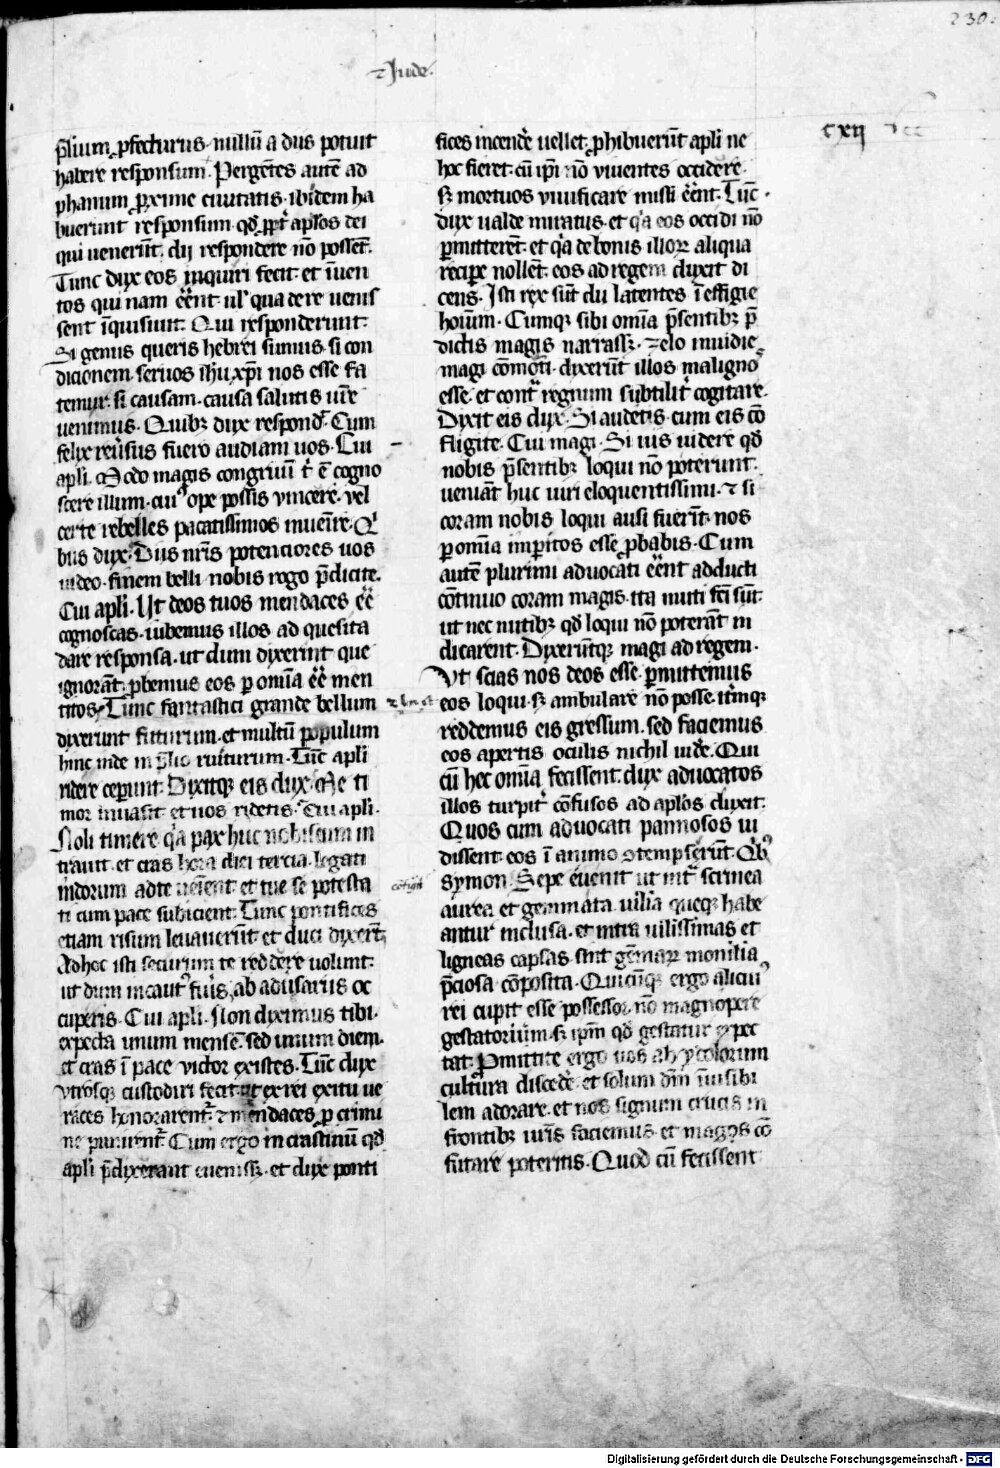 230.
⁊ Jude.
cxij
p̄lium ꝓfecturus. nullū a diis potuit
habere responsum. Pergētes autē ad
phanum ꝓxime ciuitatis. ibidem ha
buerunt responsum qd̄ ꝓpt̄ aplōs dei
qui uenerūt. dij respondere nō possēt.
Tunc dux eos inquiri fecit. et īuen
tos qui nam eēnt. ul̓ qua de re uenis
sent īquisiuit. Qui responderunt.
Si genus queris hebrei sumus. si con
dicionem. seruos ihū xp̄i nos esse fa
temur. si causam. causa salutis ur̄e
uenimus. Quibꝫ dux respond̄. Cum
felix reūsus fuero audiam uos. Cui
apl̄i. Modo magis congruū t̄ ē cogno
scere illum. cuiꝰ ope possis vincere. vel
certe rebelles pacatissimos inuenīre. Qͥ
bus dux. Diis nr̄is potenciores uos
uideo. finem belli nobis rogo p̄dicite.
Cui apl̄i. Ut deos tuos mendaces eē
cognoscas. iubemus illos ad quesita
dare responsa. ut dum dixerint que
ignorāt. ꝓbemus eos ꝑ omīa eē men
titos. Tunc fantastici grande bellum
dixerunt futurum. et multū populum
hinc inde in p̄lio ruiturum. Tūc apl̄i
ridere ceperunt. Dixitqꝫ eis dux. Me ti
mor inuasit et uos ridetis. Cui apl̄i.
Noli timere qͥa pax huc nobiscum in
trauit. et cras hora diei tercia. legati
indorum ad te uenīent. et tue se potesta
ti cum pace subicient. Tunc pontifices
etiam risum leuauerūt et duci dixerūt.
Ad hoc isti securum te reddere uolunt.
ut dum incautꝰ fuīs, ab adūsariis oc
cuperis. Cui apl̄i. Non diximus tibi.
expecta unum mensē. sed unum diem.
et cras ī pace victor existes. Tūc dux
vtrosqꝫ custodiri fecit. ut ex rei exitu ue
races honorarent̄. et mēdaces ꝓ crimi
ne punirent̄. Cum ergo in crastinū qd̄
apl̄i p̄dixerant euenissꝫ. et dux ponti
fices incendēre uellet. ꝓhibuerūt apl̄i ne
hoc fieret. cū ip̄i nō viuentes occidere.
sꝫ mortuos viuificare missi eēnt. Tūc
dux ualde miratus. et qͥa eos occidi nō
ꝑmitterēt. et qͥa de bonis illoꝝ aliqua
recipe nollent. eos ad regem duxit di
cens. Isti rex sūt dii latentes ī effigie
hoīum. Cumqꝫ sibi omīa p̄sentibꝫ p̄
dictis magis narrassꝫ. zelo inuidie
magi cōmoti. dixerūt illos malignos
esse. et contͣ regnum subtilit̄ cogitare.
Dixit eis dux. Si audetis. cum eis cō
fligite. Cui magi. Si uis uidere qd̄
nobis p̄sentibꝫ loqui nō poterunt.
ueniāt huc uiri eloquentissimi. ⁊ si
coram nobis loqui ausi fuerīt. nos
ꝑ omīa imꝑitos esse ꝓbabis. Cum
autē plurimi aduocati eēnt adducti
cōtinuo coram magis. ita muti fc̄i sūt.
ut nec nutibꝫ qd̄ loqui nō poterāt in
dicarent. Dixerūtqꝫ magi ad regem.
Vt scias nos deos esse. ꝑmittemus
eos loqui. sꝫ ambulare nō posse. itēmqꝫ
reddemus eis gressum. sed faciemus
eos apertis oculis nichil uidēre. Qui
cū hec omīa fecissent. dux aduocatos
illos turpit̄ cōfusos ad aplōs duxit.
Quos cum aduocati pannosos ui
dissent. eos ī animo ↄtempserūt. Qͥbꝰ
symon. Sepe euenit ut intͣ scrinea
aurea et gemmata uilia queqꝫ habe
antur inclusa. et intra uilissimas et
ligneas capsas sint gēmaꝝ monilia
p̄ciosa cōposita. Quicūqꝫ ergo alicuiꝰ
rei cupit esse possessor. nō magnopere
gestatorium. sꝫ ip̄m qd̄ gestatur expec
tat. Ꝓmittite ergo uos ab ydolorum
cultura discedēre. et solum dm̄ īuisibi
lem adorare. et nos signum crucis in
frontibꝫ ur̄is faciemus. et magos cō
futare poteritis. Quod cū fecissent
Digitalisierung gefördert durch die Deutsche Forschungsgemeinschaft - DFG